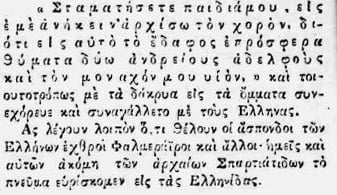 « Σταματήσετε παιδιάμου, εἰς
ἐμὲ ἀνήκει ν' ἀρχίσω τὸν χορόν, δι-
ότι εἰς αὐτὸ τὸ ἔδαφος ἐπρόσφερα
θύματα δύω ἀνδρείους ἀδελφοὺς
καὶ τὸν μοναχόν μου υἱόν, » καὶ τοι-
ουτοτρόπως μὲ τὰ δάκρυα εἰς τὰ ὄμματα συν-
εχόρευε καὶ συναγάλλετο μὲ τοὺς Ἕλληνας.
Ἂς λέγουν λοιπὸν ὅ,τι θέλουν οἱ ἄσπονδοι τῶν
Ἑλλήνων ἐχθροὶ Φαλμεράϊροι καὶ ἄλλοι· ἡμεῖς καὶ
αὐτῶν ἀκόμη τῶν ἀρχαίων Σπαρτιάτιδων τὸ
πνεῦμα εὑρίσκομεν εἰς τὰς Ἑλληνίδας.